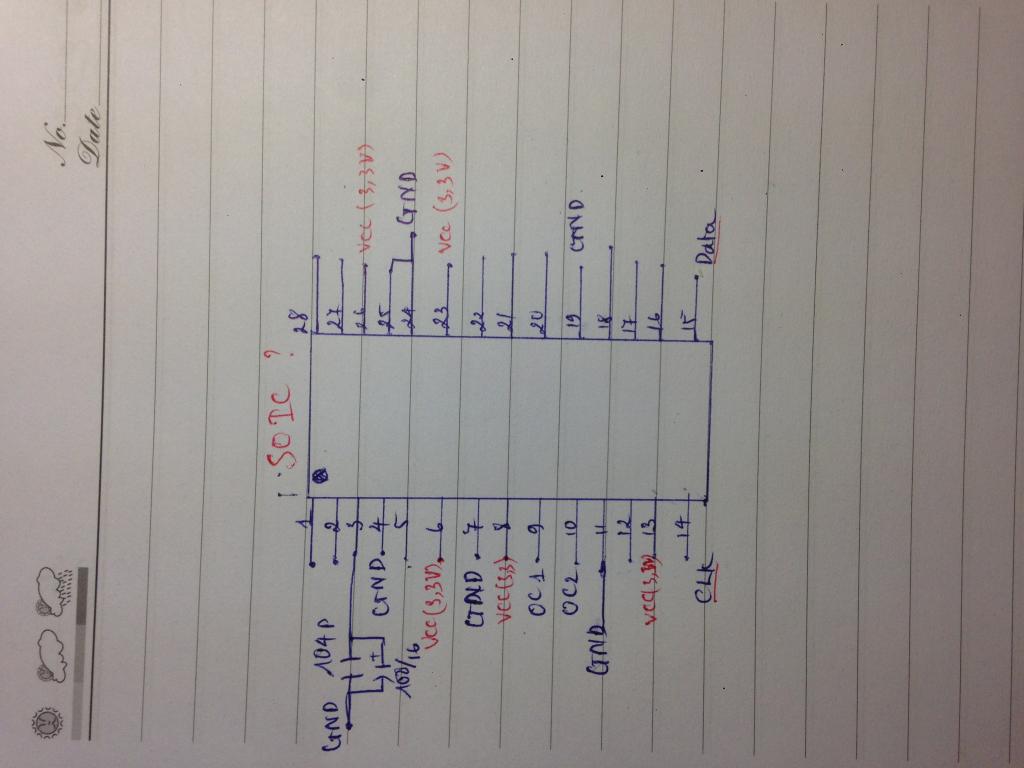 No.
Date
SOIC ?
1
2
GND 104P 3
100/16
GND 4
5
Vcc (3,3V) 6
GND 7
Vcc (3,3) 8
OC1 9
OC2 10
GND 11
12
Vcc (3,3V) 13
CLK 14
28
27
26 Vcc (3,3V)
25
24 GND
23 Vcc (3,3V)
22
21
20
19 GND
18
17
16
15 Data